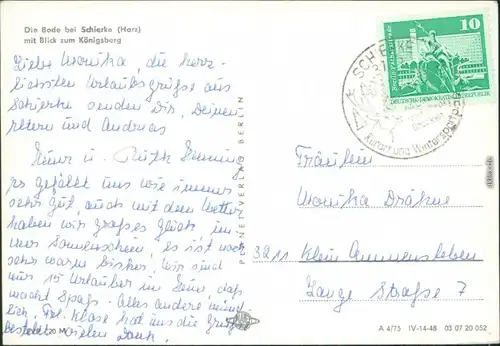 Die Bode bei Schierke (Harz)
mit Blick zum Königsberg
Liebe Monika, die herz-
lichsten Urlaubsgrüße aus
Schierke senden Dir, Deinen
Eltern und Andreas
u. Ruth
es gefällt uns wie immer
sehr gut, auch mit dem Wetter
haben wir großes Glück, im-
mer Sonnenschein, es ist auch
sehr warm bisher. Wir sind
nur 15 Urlauber im Heim, das
macht Spaß. Alles andere münd-
lich. Frl. Klase hat uns die Grüße
bestellt vielen Dank.
PLANET-VERLAG BERLIN
10
DEUTSCHE DEMOKRATISCHE REPUBLIK
SCHIERKE
Kurort und Wintersportplatz
Fräulein
Monika Dräkne
3211 Klein Ammensleben
Lange Straße 7
A 4/75 IV-14-48 03 07 20 052